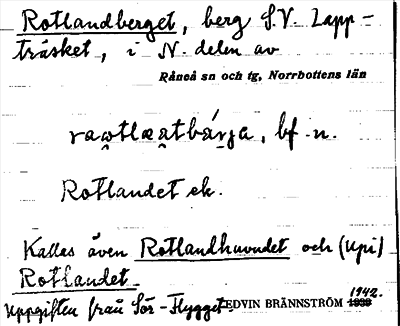 Rotlandberget, berg S.V. Lapp-
träsket, i N. delen av
Råneå sn och tg, Norrbottens län
bf. n.
Rotlandet ek.
Kallas även Rotlandhuvudet och (upi)
Rotlandet
Uppgiften från Sör-Flygget. EDVIN BRÄNNSTRÖM 1939 1942.